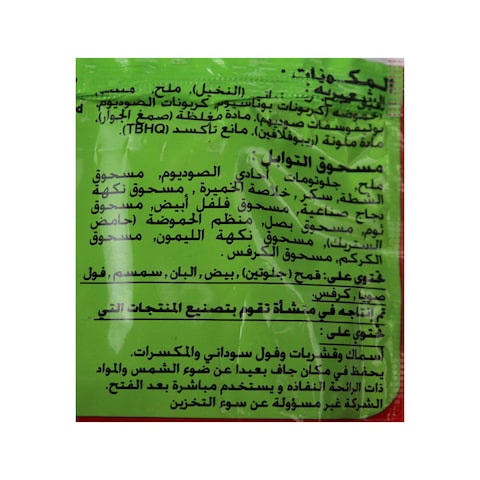 المكونات :
الشعيرية
(النخيل), ملح, منظم
الحموضة (كربونات بوتاسيوم, كربونات الصوديوم,
بوليفوسفات صوديوم), مادة مغلظة (صمغ الجوار),
مادة ملونة (ريبوفلافين), مانع تأكسد (TBHQ).
مسحوق التوابل :
ملح, جلوتومات أحادي الصوديوم, مسحوق
الشطة, سكر, خلاصة الخميرة, مسحوق نكهة
دجاج صناعية, مسحوق فلفل أبيض, مسحوق
ثوم, مسحوق بصل, منظم الحموضة (حامض
الستريك), مسحوق نكهة الليمون, مسحوق
الكركم, مسحوق الكرفس.
تحتوي على: قمح (جلوتين), بيض, البان, سمسم, فول
صويا, كرفس.
تم إنتاجه في منشأة تقوم بتصنيع المنتجات التي
تحتوي على :
أسماك وقشريات وفول سوداني والمكسرات.
يحفظ في مكان جاف بعيدا عن ضوء الشمس والمواد
ذات الرائحة النفاذه و يستخدم مباشرة بعد الفتح.
الشركة غير مسؤولة عن سوء التخزين